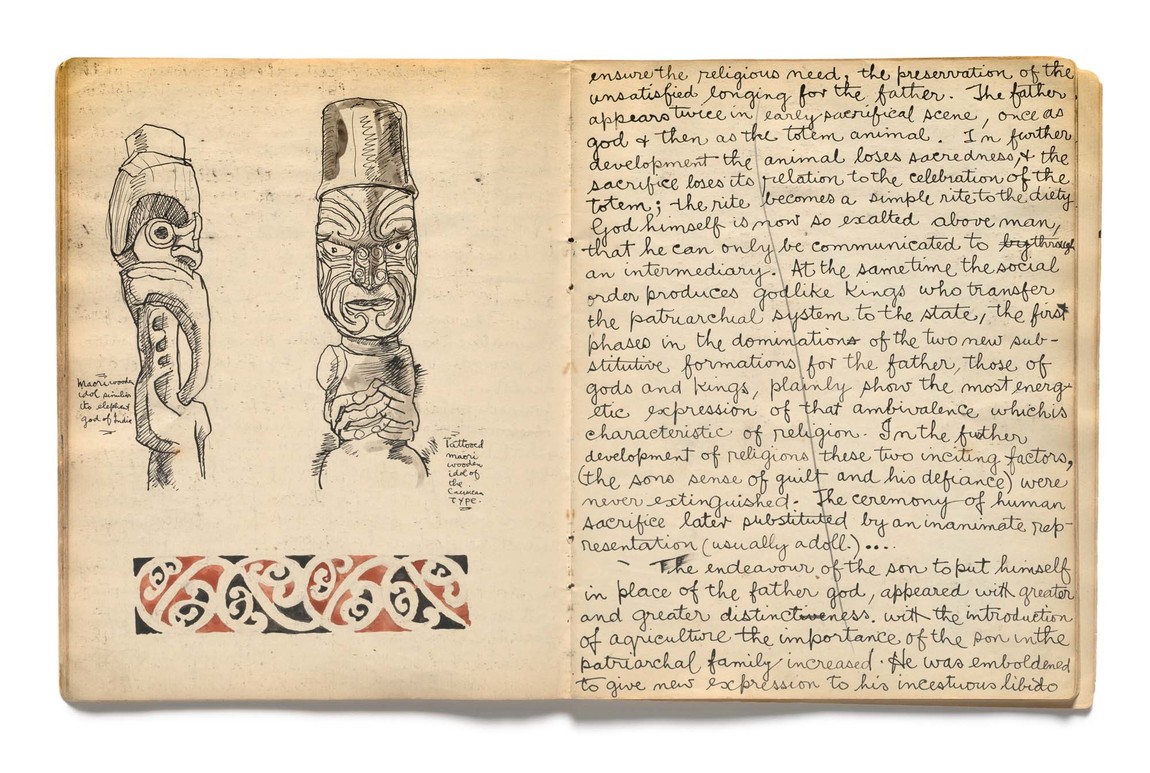 Maori wooden
idol similar
to elephant
god of India
Tattooed
maori
wooden
idol of
the
Caucasian
TYPE.
ensure the religious need, the preservation of the
unsatisfied longing for the father. The father
appears twice in early sacrifical scene, once as
god & then as the totem animal. In further
development the animal loses sacredness, & the
sacrifice loses its relation to the celebration of the
totem; the rite becomes a simple rite to the diety.
God himself is now so exalted above man,
that he can only be communicated to by through
an intermediary. At the same time the social
order produces godlike Kings who transfer
the patriarchial system to the state, the first
phases in the dominations of the two new sub-
stitutive formations for the father, those of
gods and kings, plainly show the most energ-
etic expression of that ambivalence which is
characteristic of religion. In the futher
development of religions these two inciting factors,
(the sons sense of guilt and his defiance) were
never extinguished. The ceremony of human
sacrifice later substituted by an inanimate rep-
resentation (usually a doll.)....
The endeavour of the son to put himself
in place of the father god, appeared with greater
and greater distinctiveness. with the introduction
of agriculture the importance of the son in the
patriarchal family increased. He was emboldened
to give new expression to his incestuous libido